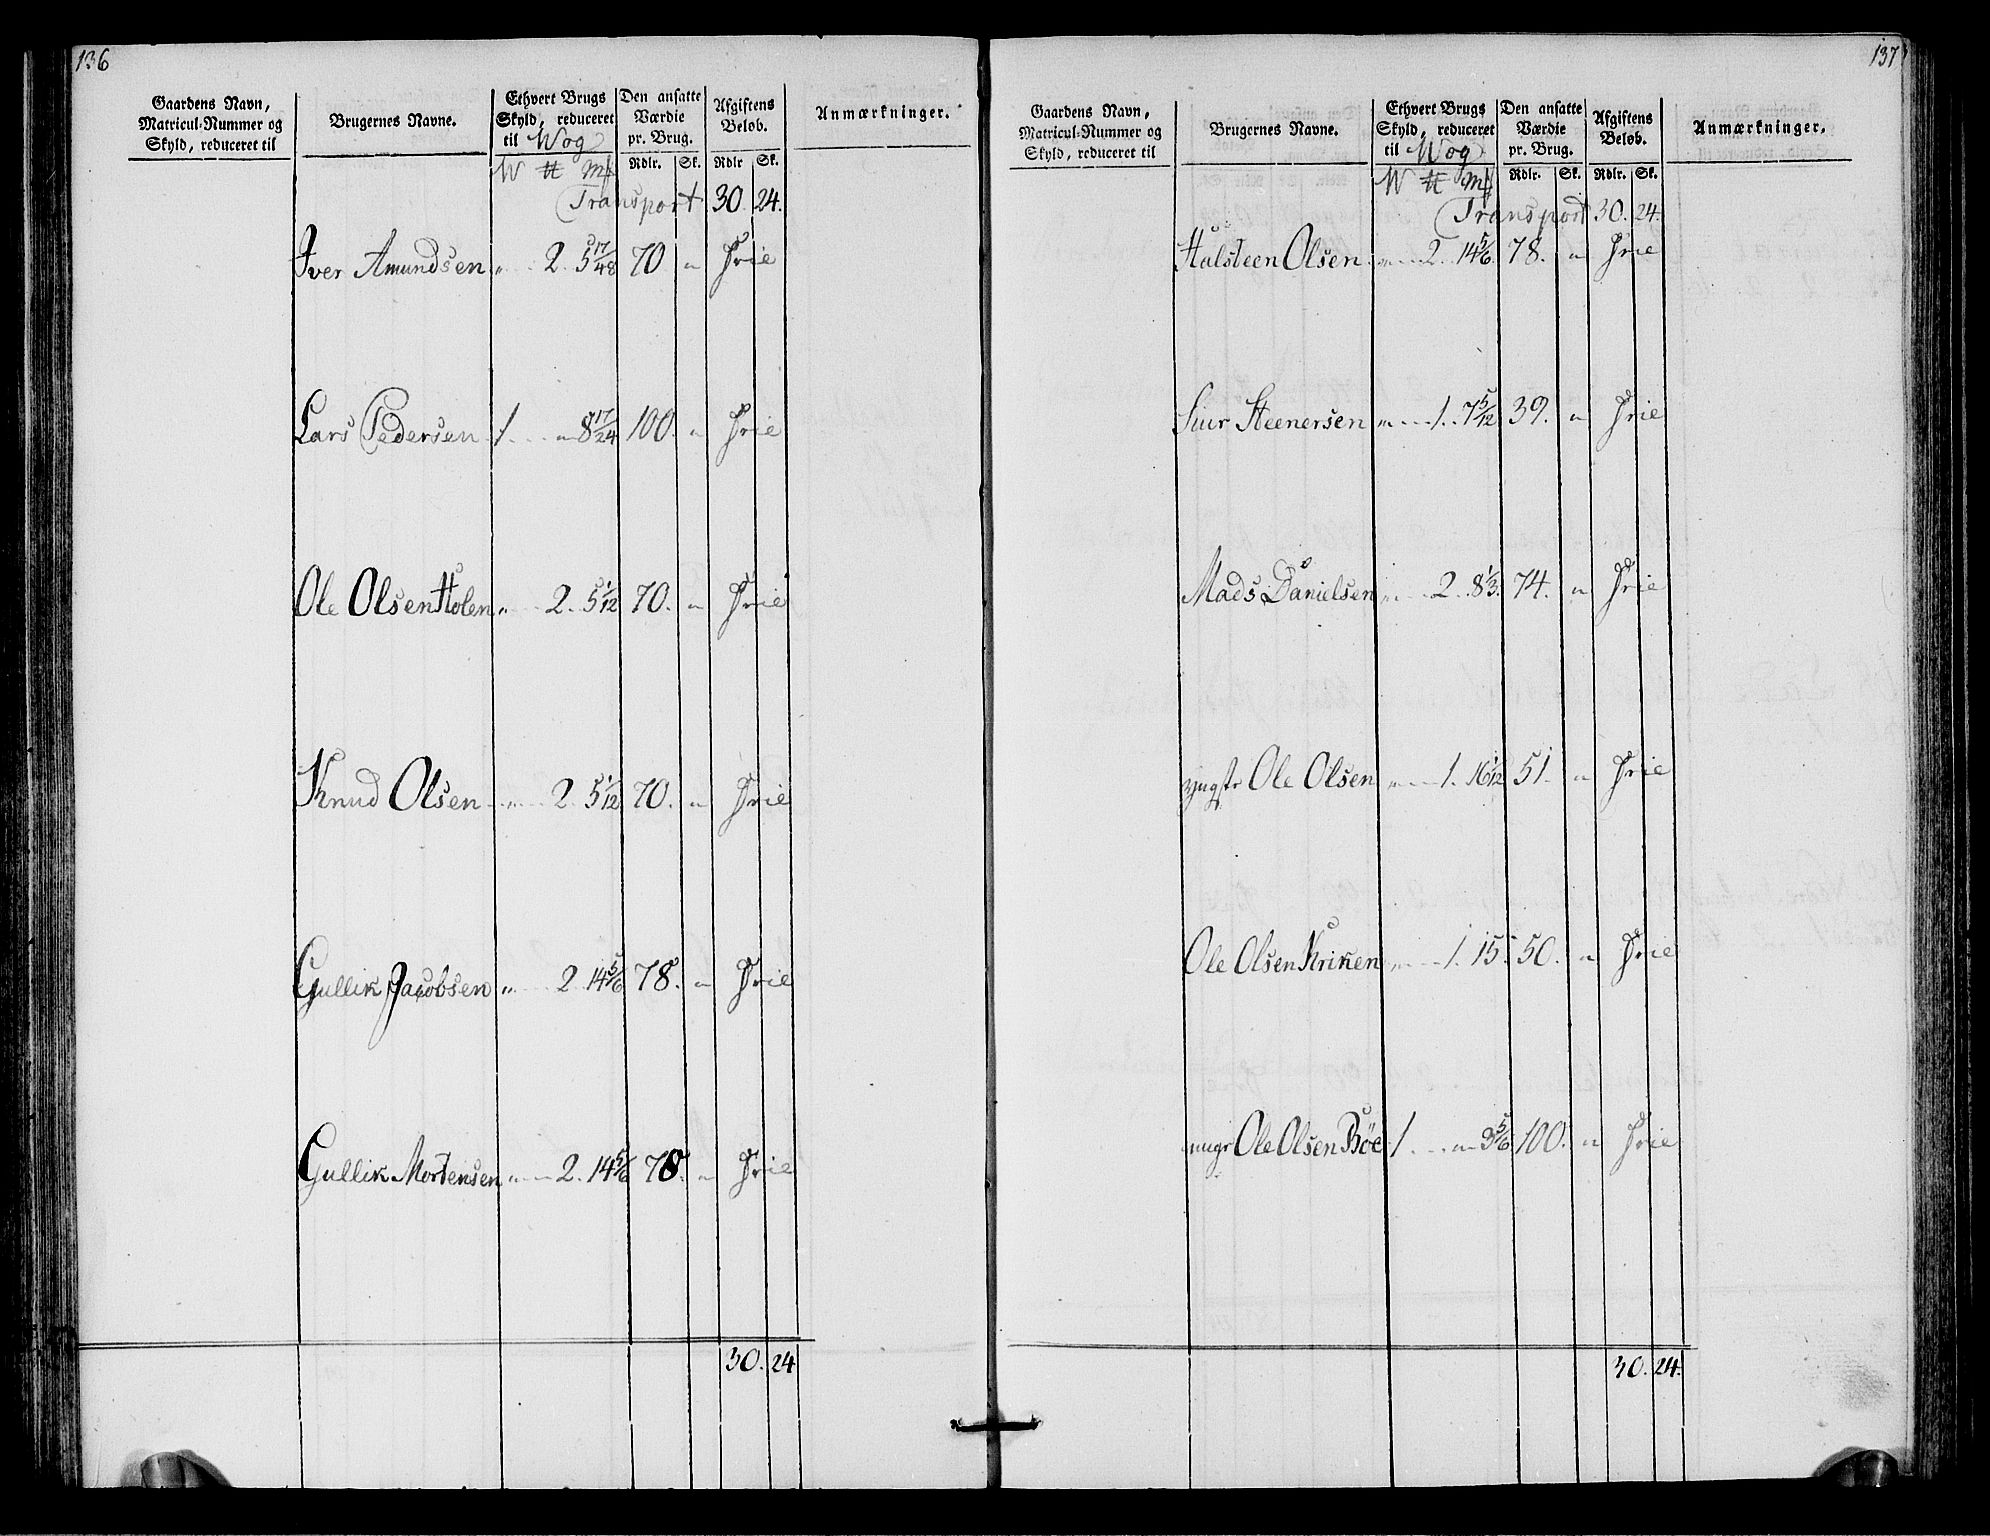 136
Gaardens Navn, Matricul-Nummer og Skyld, reduceret til | Brugernes Navne. | Ethvert Brugs Skyld, reduceret til Wog | Den ansatte Værdie pr. Brug. | Afgiftens Beløb. | Anmærkninger.
W ℔ Mk | Rdlr. Sk. | Rdlr Sk.
Transport 30. 24.
Iver Amundsen „ 2. 5 17/48 70 „ Frie
Lars Pedersen 1. „ 8 17/24 100. „ Frie
Ole Olsen Holen „ 2. 5 1/12 70. „ Frie
Knud Olsen „ 2. 5 1/12 70. „ Frie
Gullik Jacobsen „ 2. 14 5/6 78. „ Frie
Gullik Mortensen „ 2. 14 5/6 78. „ Frie
30. 24
137
Gaardens Navn, Matricul-Nummer og Skyld, reduceret til | Brugernes Navne. | Ethvert Brugs Skyld, reduceret til Wog | Den ansatte Værdie pr. Brug. | Afgiftens Beløb. | Anmærkninger.
W ℔ Mk | Rdlr. Sk. | Rdlr. Sk.
Transport 30. 24.
Halsteen Olsen „ 2. 14 5/6. 78. „ Frie
Siur Steenersen „ 1. 7 5/12 39. „ Frie
Mads Danielsen „ 2. 8 1/3. 74. „ Frie
yngste Ole Olsen „ 1. 16 1/12 51. „ Frie
Ole Olsen Kriken „ 1. 15. 50. „ Frie
Ole Olsen Bøe 1. „ 3 5/6 100. „ Frie
30. 24.